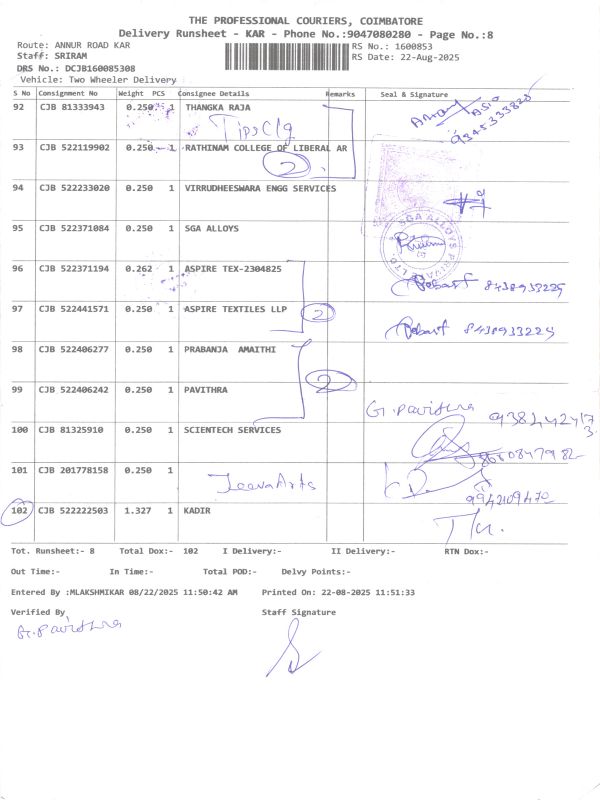 THE PROFESSIONAL COURIERS, COIMBATORE
Delivery Runsheet - KAR - Phone No.:9047080280 - Page No.:8
Route: ANNUR ROAD KAR
RS No.: 1600853
Staff: SRIRAM
RS Date: 22-Aug-2025
DRS No.: DCJB160085308
Vehicle: Two Wheeler Delivery
S No Consignment No Weight PCS Consignee Details Remarks Seal & Signature
92 CJB 81333943 0.250 1 THANGKA RAJA
Tips Clg
93 CJB 522119902 0.250 1 RATHINAM COLLEGE OF LIBERAL AR
2
94 CJB 522233020 0.250 1 VIRRUDHEESWARA ENGG SERVICES
95 CJB 522371084 0.250 1 SGA ALLOYS
SGA ALLOYS PRIVATE LTD.
96 CJB 522371194 0.262 1 ASPIRE TEX-2304825
8438933225
97 CJB 522441571 0.250 1 ASPIRE TEXTILES LLP 2
8438933225
98 CJB 522406277 0.250 1 PRABANJA AMAITHI
2
99 CJB 522406242 0.250 1 PAVITHRA
G. Pavithra
100 CJB 81325910 0.250 1 SCIENTECH SERVICES
101 CJB 201778158 0.250 1
Jeeva Arts
9942109470
102 CJB 522222503 1.327 1 KADIR
Tot. Runsheet:- 8 Total Dox:- 102 I Delivery:- II Delivery:- RTN Dox:-
Out Time:- In Time:- Total POD:- Delvy Points:-
Entered By :MLAKSHMIKAR 08/22/2025 11:50:42 AM Printed On: 22-08-2025 11:51:33
Verified By Staff Signature
G. Pavithra